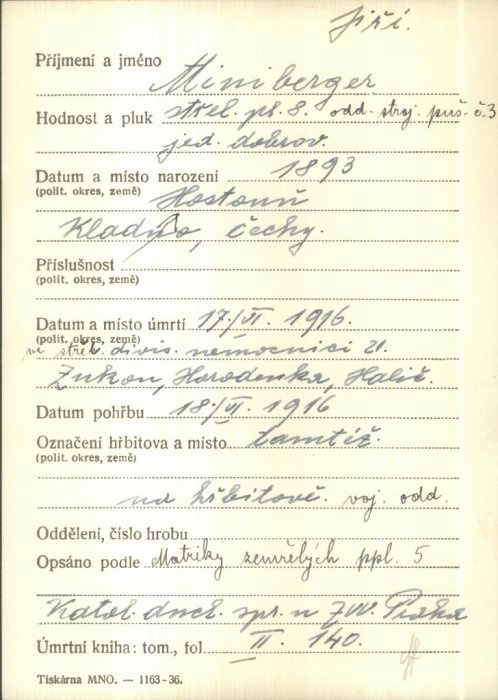 Jiří.
Příjmení a jméno
Miniberger
Hodnost a pluk střel. pl. 8. odd. stroj. puš. č. 3
jed. dobrov.
Datum a místo narození 1893
(polit. okres, země) Hostouň
Kladno, Čechy.
Příslušnost
(polit. okres, země)
Datum a místo úmrtí 17./VI. 1916.
(polit. okres, země)
ve střel. divis. nemocnici 21.
Zukon, Horodenka, Halič.
Datum pohřbu 18./VI. 1916
Označení hřbitova a místo tamtéž.
(polit. okres, země)
na hřbitově. voj. odd.
Oddělení, číslo hrobu
Opsáno podle Matriky zemřelých ppl. 5
Katol. duch. spr. u ZVV. Praha
Úmrtní kniha: tom., fol. II. 140.
Tiskárna MNO. — 1163-36.